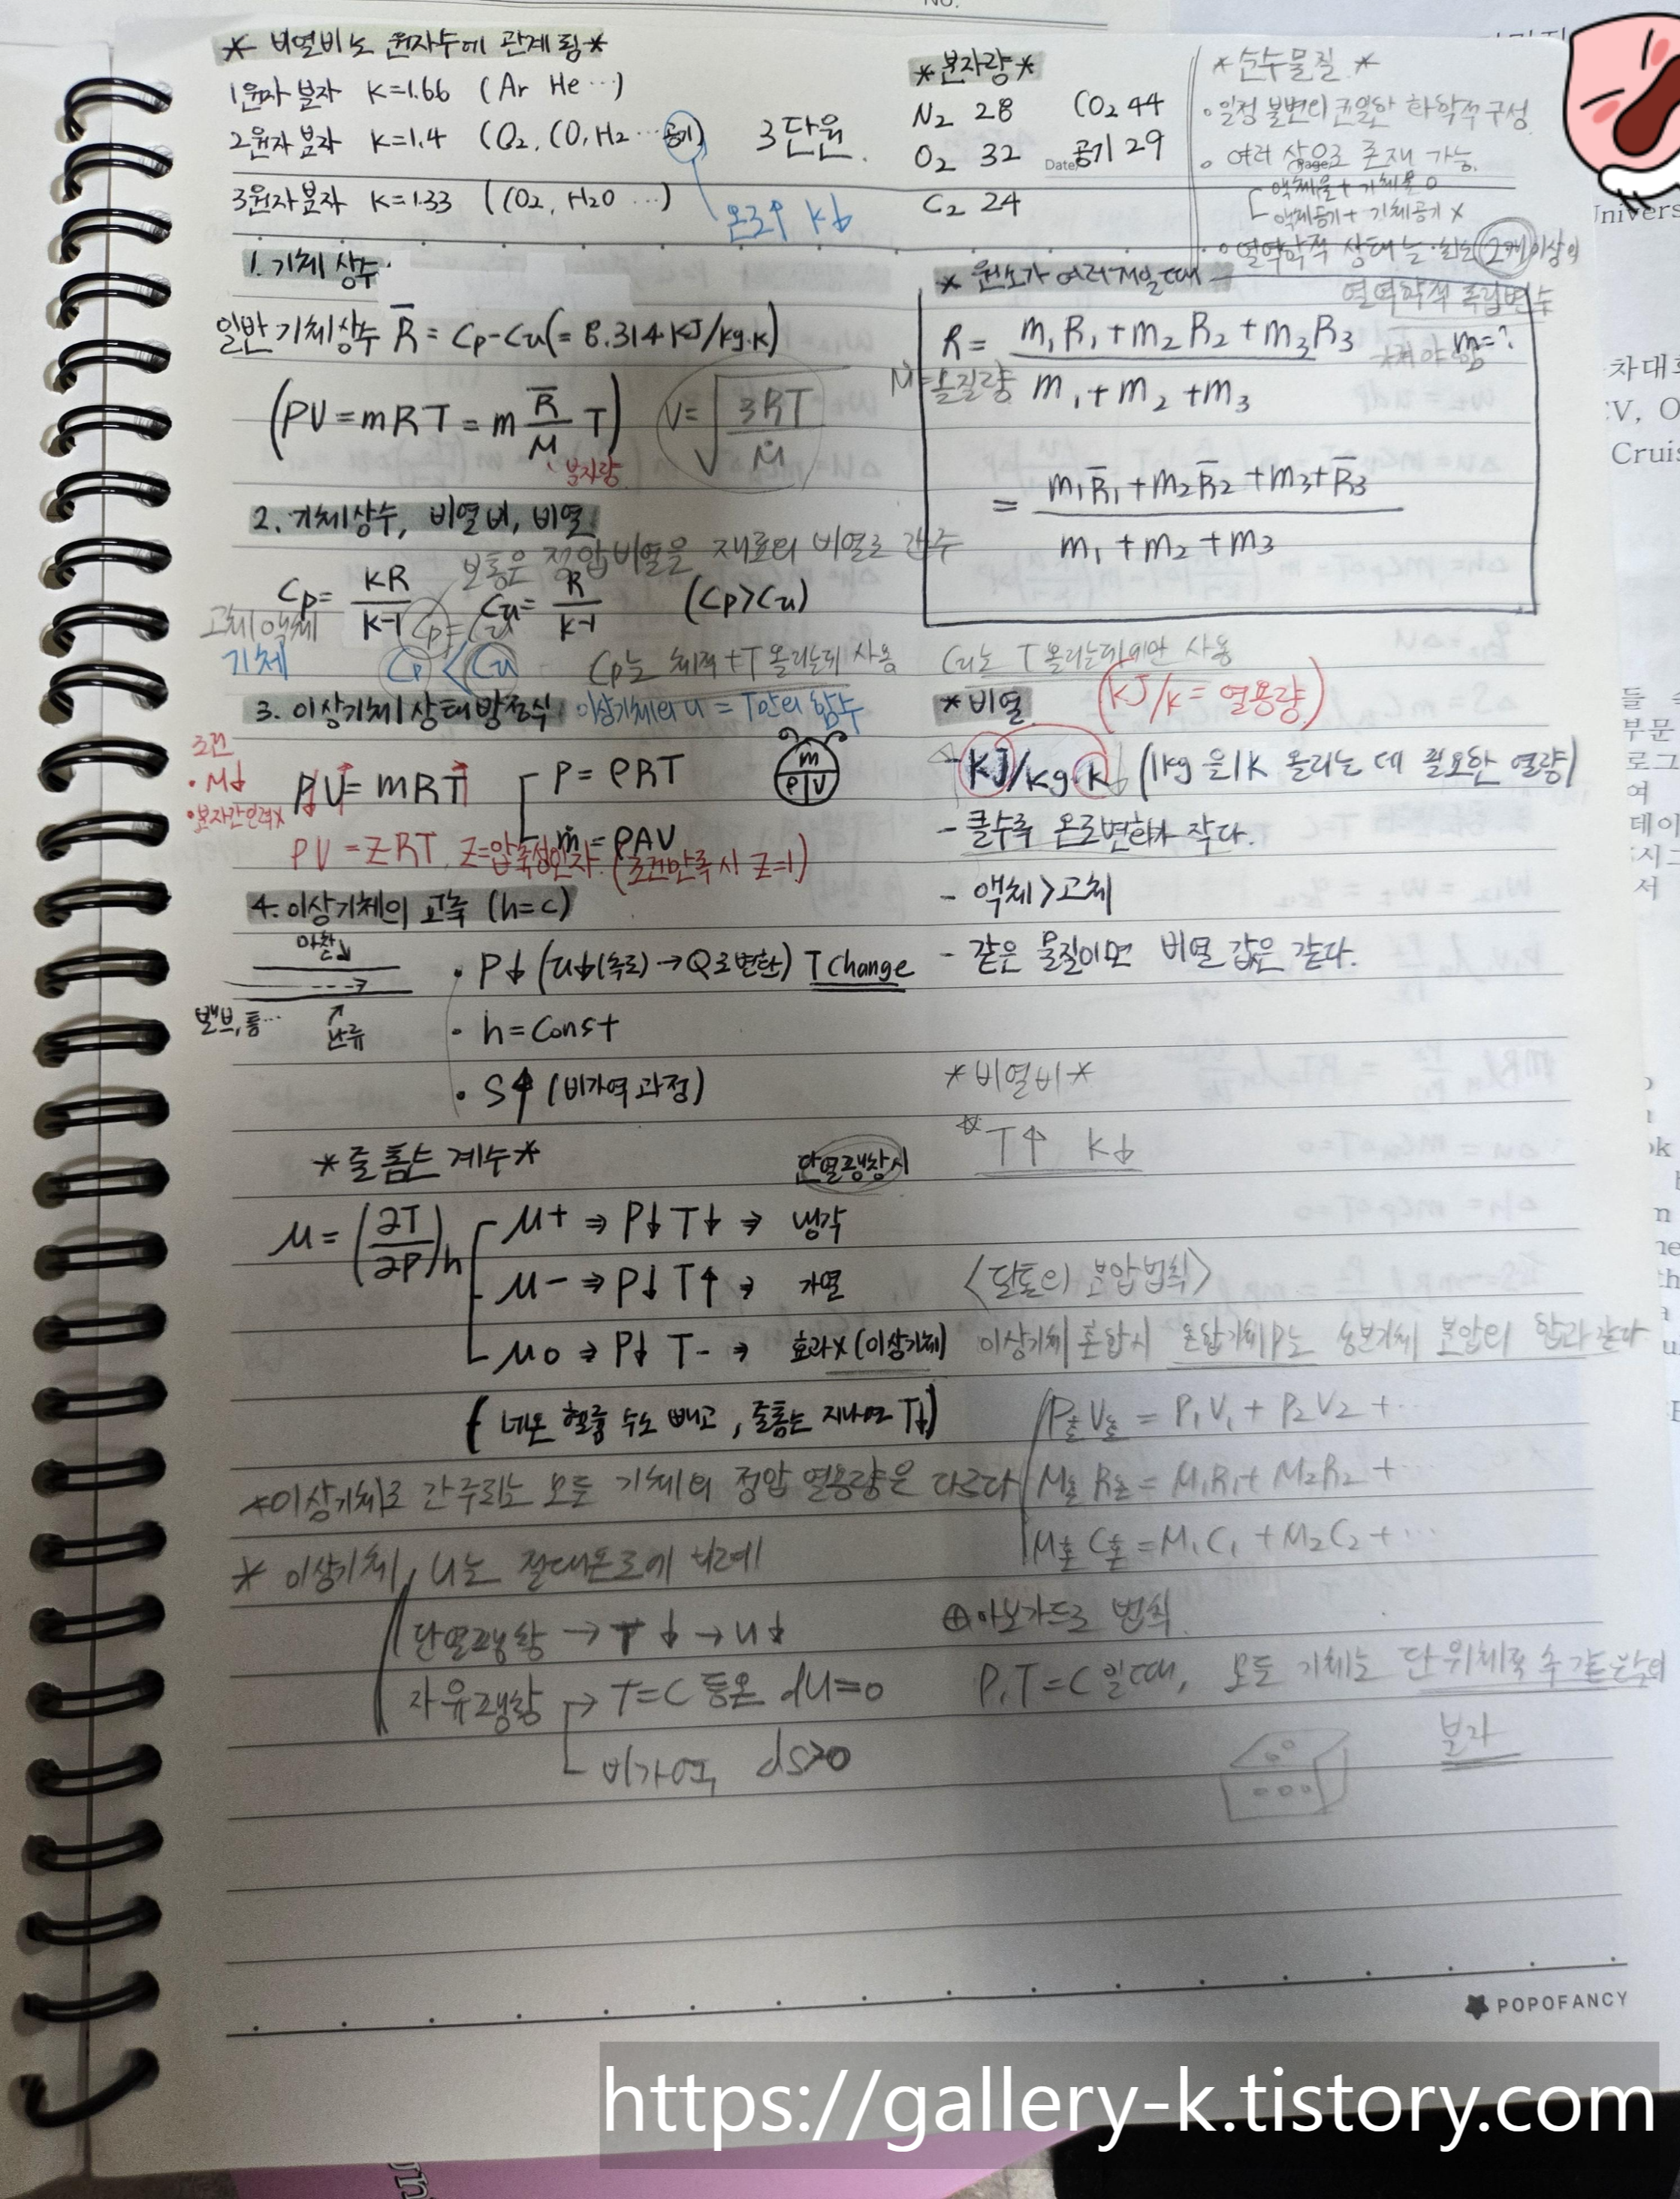 * 비열비는 원자수에 관계됨 *
1원자 분자 K=1.66 (Ar He …)
2원자 분자 K=1.4 (O₂, CO, H₂ … 공기)
3원자 분자 K=1.33 (CO₂, H₂O …)
온도↑ k↓
3단원.
* 분자량 *
N₂ 28 CO₂ 44
O₂ 32 공기 29
C₂ 24
Date
Page
* 순수물질 *
일정 불변의 균일한 화학적 구성
여러 상으로 존재 가능.
액체물 + 기체물 O
액체공기 + 기체공기 X
열역학적 상태는 2개 이상의
열역학적 독립변수
1. 기체 상수
일반 기체상수 R̅ = Cp-Cu(= 8.314 KJ/kg.K)
(PV = mRT = m R̅/M T)
분자량
V= √(3RT/Ṁ)
Ṁ=몰질량
* 원소가 여러개일 때
R = (m₁R₁ + m₂R₂ + m₃R₃)/(m₁ + m₂ + m₃) m=?
= (m₁R̅₁ + m₂R̅₂ + m₃+R̅₃)/(m₁ + m₂ + m₃)
2. 기체상수, 비열비, 비열
보통은 정압비열을 재료의 비열로 간주
Cp= KR/K-1 Cu= R/K-1 (Cp>Cu)
고체/액체 Cp=Cu
기체 Cp < Cu
Cp는 체적+T 올리는데 사용
Cu는 T 올리는데에만 사용
3. 이상기체 상태방정식
이상기체의 u = T만의 함수
조건
• M↓
• 분자간인력X
PV = mRT
P = ρRT
ṁ = ρAV
m
ρ V
PV = ZRT, Z=압축성인자. (조건만족시 Z=1)
* 비열
(KJ/K = 열용량)
KJ/kg.K (1kg을 1K 올리는 데 필요한 열량)
- 클수록 온도변화가 작다.
- 액체 > 고체
- 같은 물질이면 비열 값은 같다.
4. 이상기체의 교축 (h=c)
마찰↓
밸브, 통…
난류
• P↓ (u↓(속도) → Q로 변환) T Change
• h = Const
• S↑ (비가역 과정)
* 비열비 *
* T↑ k↓
* 줄 톰슨 계수 *
단열팽창시
μ = (∂T/∂P)h
μ+ ⇒ P↓ T↓ ⇒ 냉각
μ- ⇒ P↓ T↑ ⇒ 가열
μ0 ⇒ P↓ T- ⇒ 효과X (이상기체)
(네온 헬륨 수소 빼고, 줄톰슨 지나면 T↓)
<달톤의 분압법칙>
이상기체 혼합시 혼합기체P는 성분기체 분압의 합과 같다
P혼V혼 = P₁V₁ + P₂V₂ + …
M혼R혼 = M₁R₁ + M₂R₂ + …
M혼C혼 = M₁C₁ + M₂C₂ + …
* 이상기체로 간주되는 모든 기체의 정압 열용량은 다르다
* 이상기체, u는 절대온도에 비례
단열팽창 → T↓ → u↓
자유팽창 → T=C 등온 dU=0
비가역, dS>0
⊕ 아보가드로 법칙.
P,T=C 일때, 모든 기체는 단위체적 속 같은수의
분자
POPOFANCY
https://gallery-k.tistory.com
차대
Cruis
부문